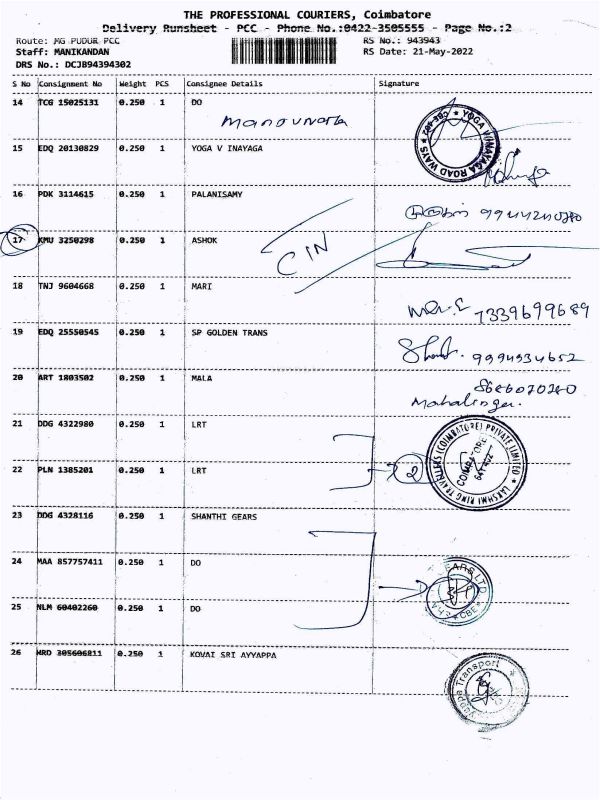 THE PROFESSIONAL COURIERS, Coimbatore
Delivery Runsheet - PCC - Phone No.:0422-3505555 - Page No.:2
Route: MG PUDUR PCC RS No.: 943943
Staff: MANIKANDAN RS Date: 21-May-2022
DRS No.: DCJB94394302
S No Consignment No Weight PCS Consignee Details Signature
14 TCG 15025131 0.250 1 DO
15 EDQ 20130829 0.250 1 YOGA V INAYAGA
YOGA VINAYAGA ROAD WAYS ★ CBE-402 ★
16 PDK 3114615 0.250 1 PALANISAMY
17 KMU 3250298 0.250 1 ASHOK
18 TNJ 9604668 0.250 1 MARI
7339699689
19 EDQ 25550545 0.250 1 SP GOLDEN TRANS
9994934652
20 ART 1803502 0.250 1 MALA
21 DDG 4322980 0.250 1 LRT
22 PLN 1385201 0.250 1 LRT
2
LAKSHMI RING TRAVELLERS (COIMBATORE) PRIVATE LIMITED ★
COIMBATORE
23 DDG 4328116 0.250 1 SHANTHI GEARS
24 MAA 857757411 0.250 1 DO
25 NLM 60402260 0.250 1 DO
26 HRD 305606811 0.250 1 KOVAI SRI AYYAPPA